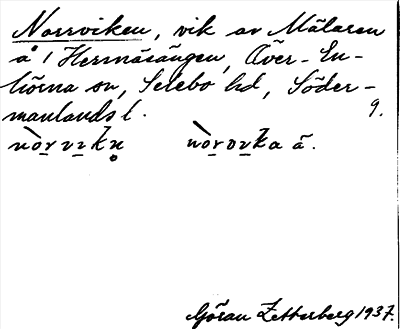 Norrviken, vik av Mälaren
å 1 Hermäsängen, Över-En-
hörna sn, Selebo hd, Söder-
manlands l. 9.
Göran Zetterberg 1937.